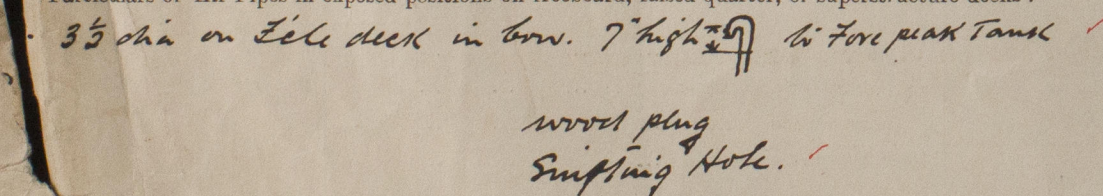 Particulars of Air Pipes in exposed positions on freeboard, raised quarter, or superstructure decks:
3½ dia on F'cle deck in bow. 7" high to Fore peak Tank
wood plug
Snifting Hole.